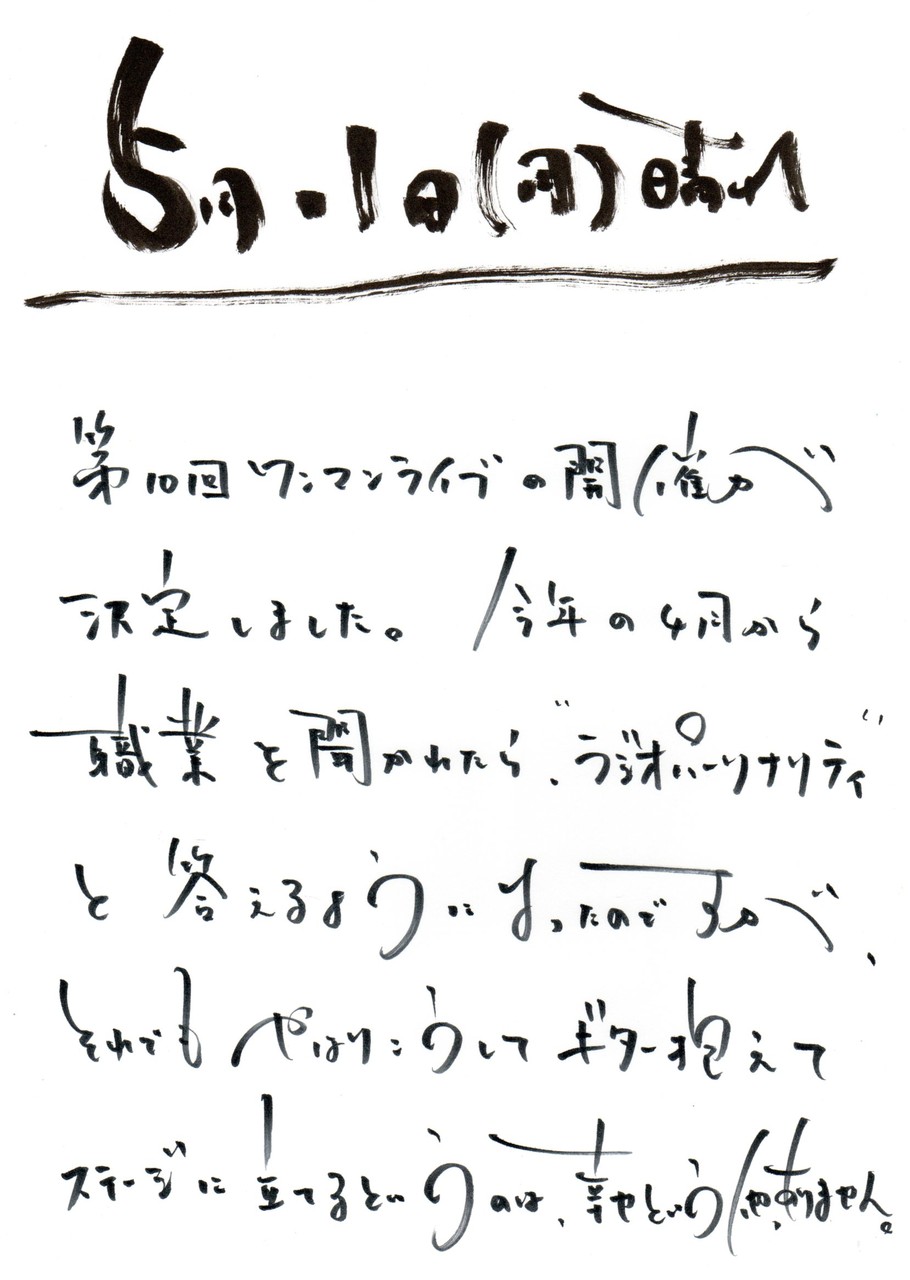 5月.1日(月)晴れ
第10回ワンマンライブの開催が
決定しました。 今年の4月から
職業を聞かれたら、"ラジオパーソナリティ"
と答えるようになったのですが、
それでもやはりこうしてギター抱えて
ステージに立てるというのは、幸せという他、ありません。